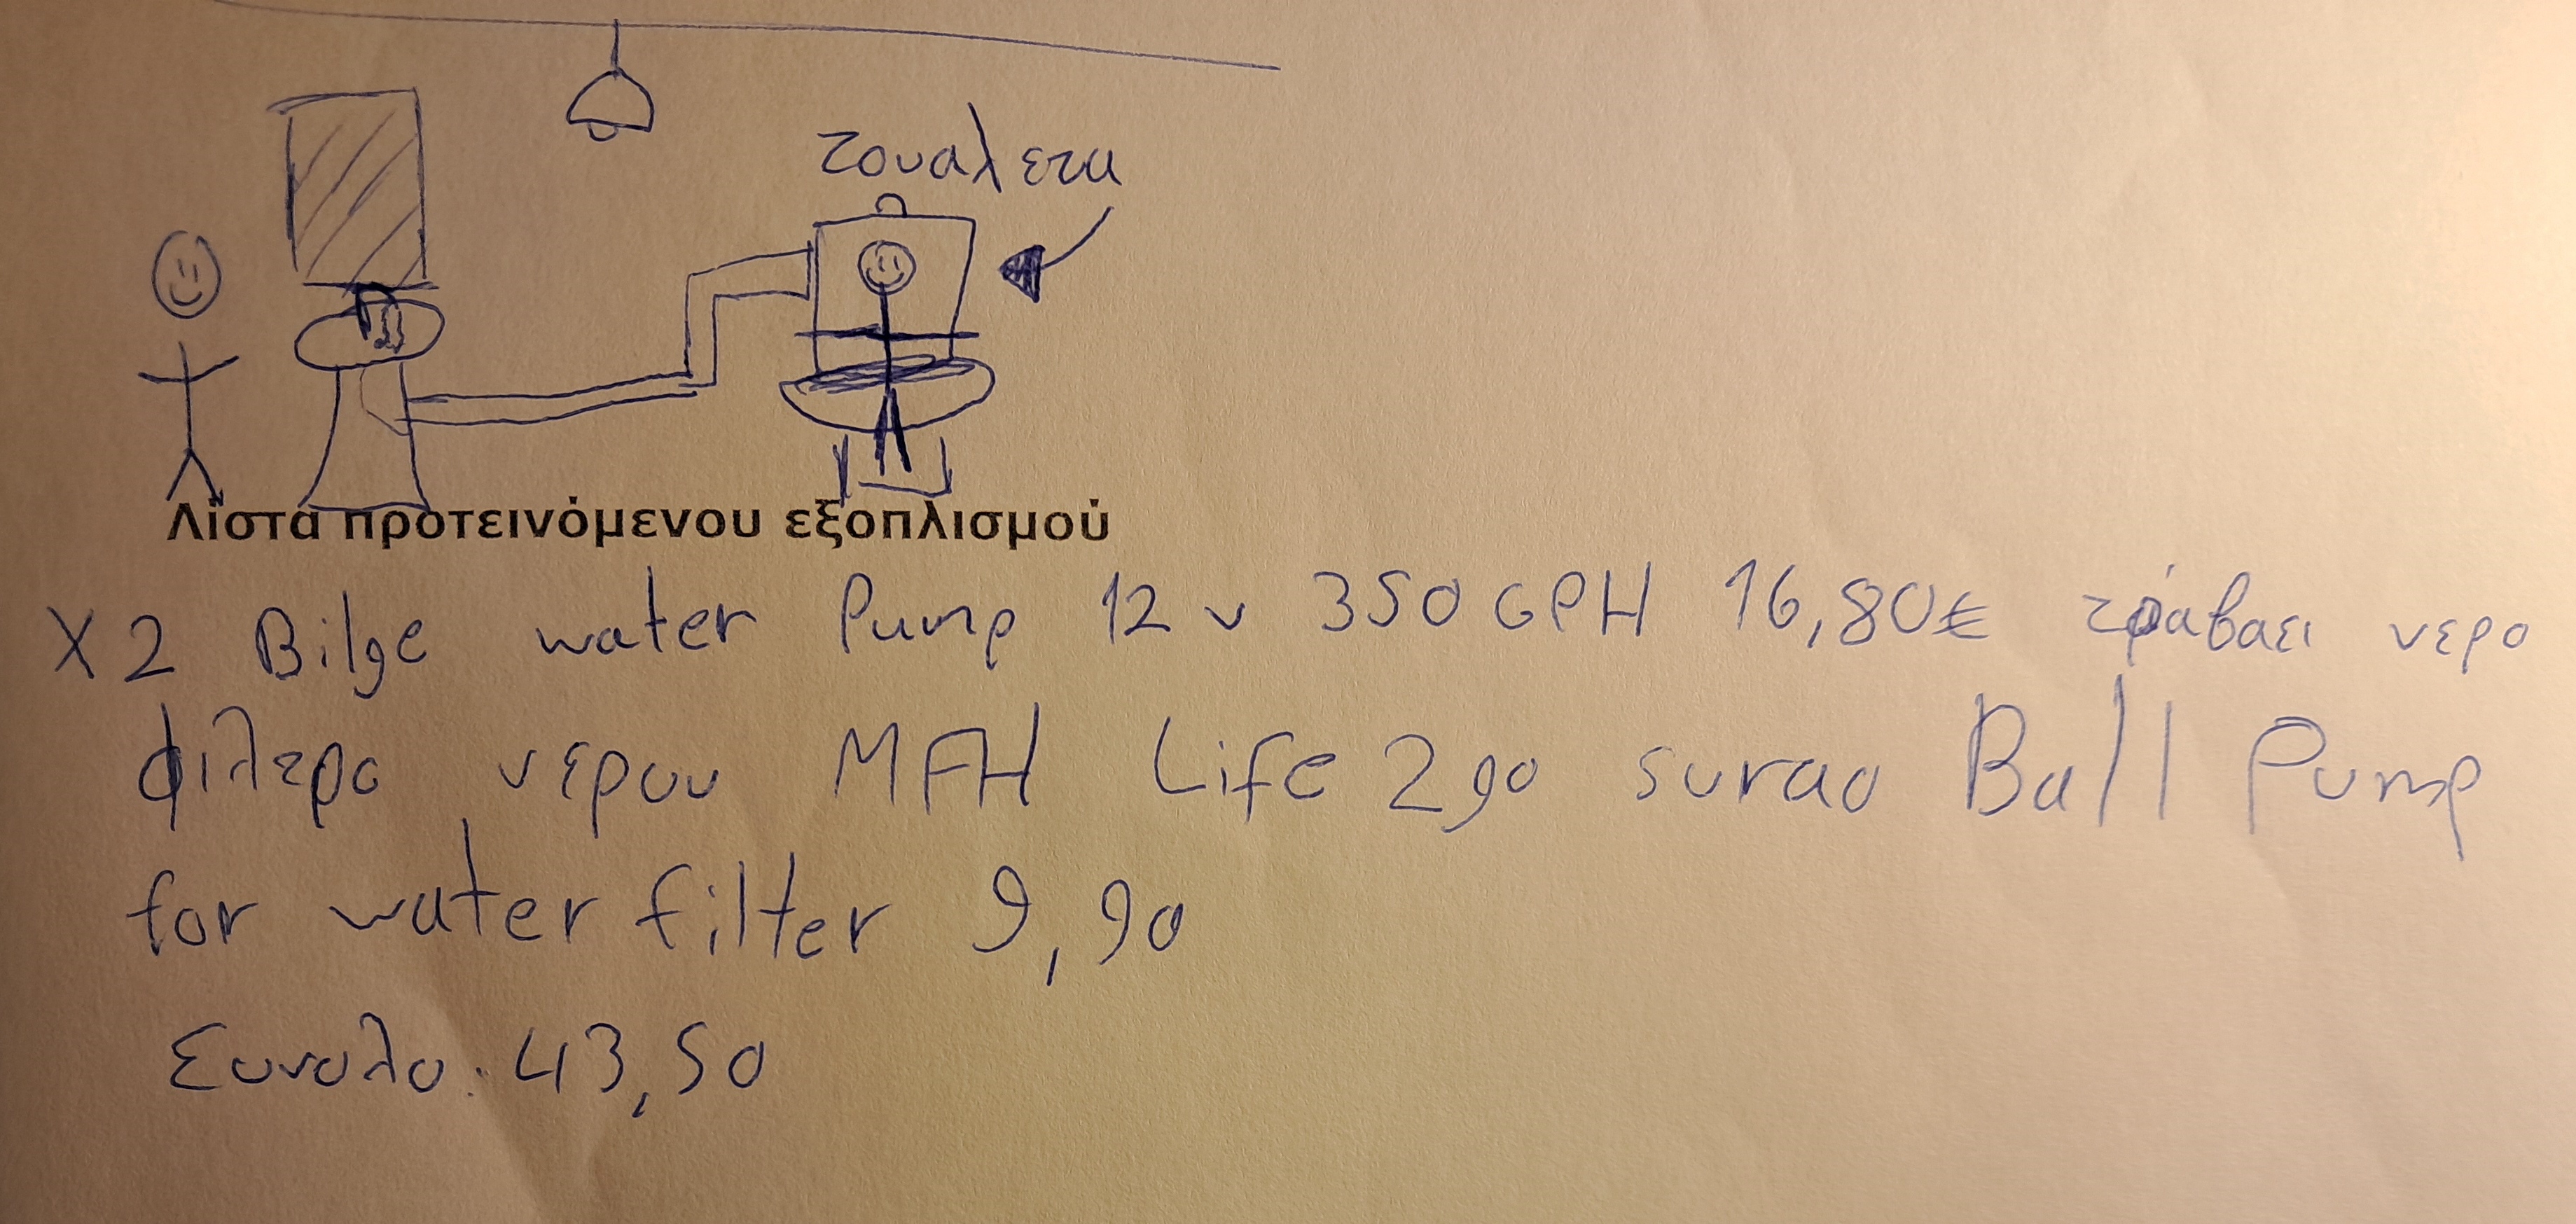 τουαλετα
Λίστα προτεινόμενου εξοπλισμού
X2 Bilge water Pump 12 v 350 GPH 16,80€ τράβαει νερο
φιλτρο νερου MFH Life 2go surao Ball Pump
for water filter 9,90
Συνολο: 43,50